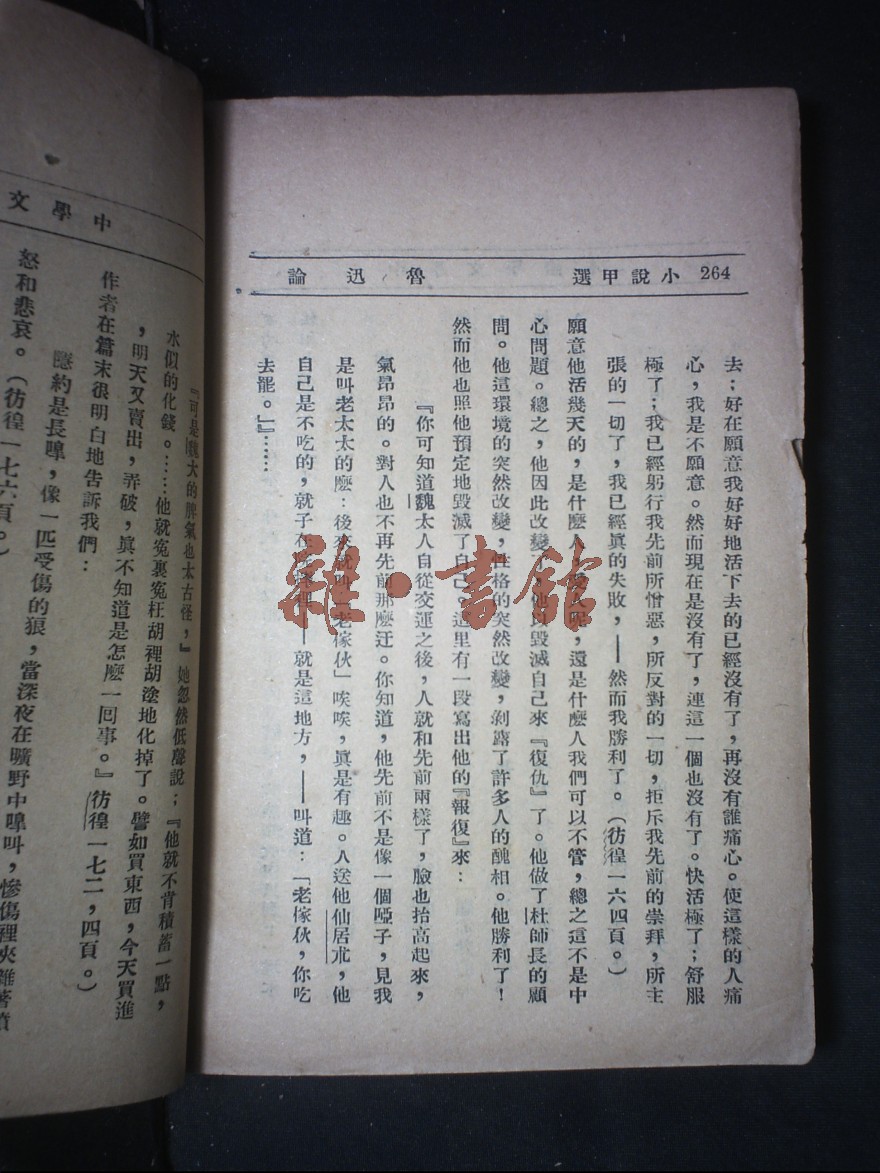 264 小說甲選 魯迅論
去；好在願意我好好地活下去的已經沒有了，再沒有誰痛心。使這樣的人痛
心，我是不願意。然而現在是沒有了，連這一個也沒有了。快活極了；舒服
極了；我已經躬行我先前所憎惡，所反對的一切，拒斥我先前的崇拜，所主
張的一切了，我已經眞的失敗，——然而我勝利了。（彷徨一六四頁。）
願意他活幾天的，是什麼人，愛人呢，還是什麼人我們可以不管，總之這不是中
心問題。總之，他因此改變了，他以毀滅自己來『復仇』了。他做了杜師長的顧
問。他這環境的突然改變，性格的突然改變，剝露了許多人的醜相。他勝利了！
然而他也照他預定地毀滅了自己。這里有一段寫出他的『報復』來：
『你可知道魏大人自從交運之後，人就和先前兩樣了，臉也抬高起來，
氣昂昂的。對人也不再先前那麽迂。你知道，他先前不是像一個啞子，見我
是叫老太太的麽：後來就叫「老傢伙」唉唉，眞是有趣。人送他仙居朮，他
自己是不吃的，就子在院子裡——就是這地方，——叫道：「老傢伙，你吃
去罷。」』……
中學文
『可是魏大的脾氣也太古怪，』她忽然低聲說；『他就不肯積蓄一點，
水似的化錢。……他就冤裏冤枉胡裡胡塗地化掉了。譬如買東西，今天買進
，明天又賣出，弄破，眞不知道是怎麽一囘事。』彷徨一七二，四頁。）
作者在篇末很明白地告訴我們：
隱約是長嘷，像一匹受傷的狼，當深夜在曠野中嘷叫，慘傷裡夾雜著憤
怒和悲哀。（彷徨一七六頁。）
雜·書館